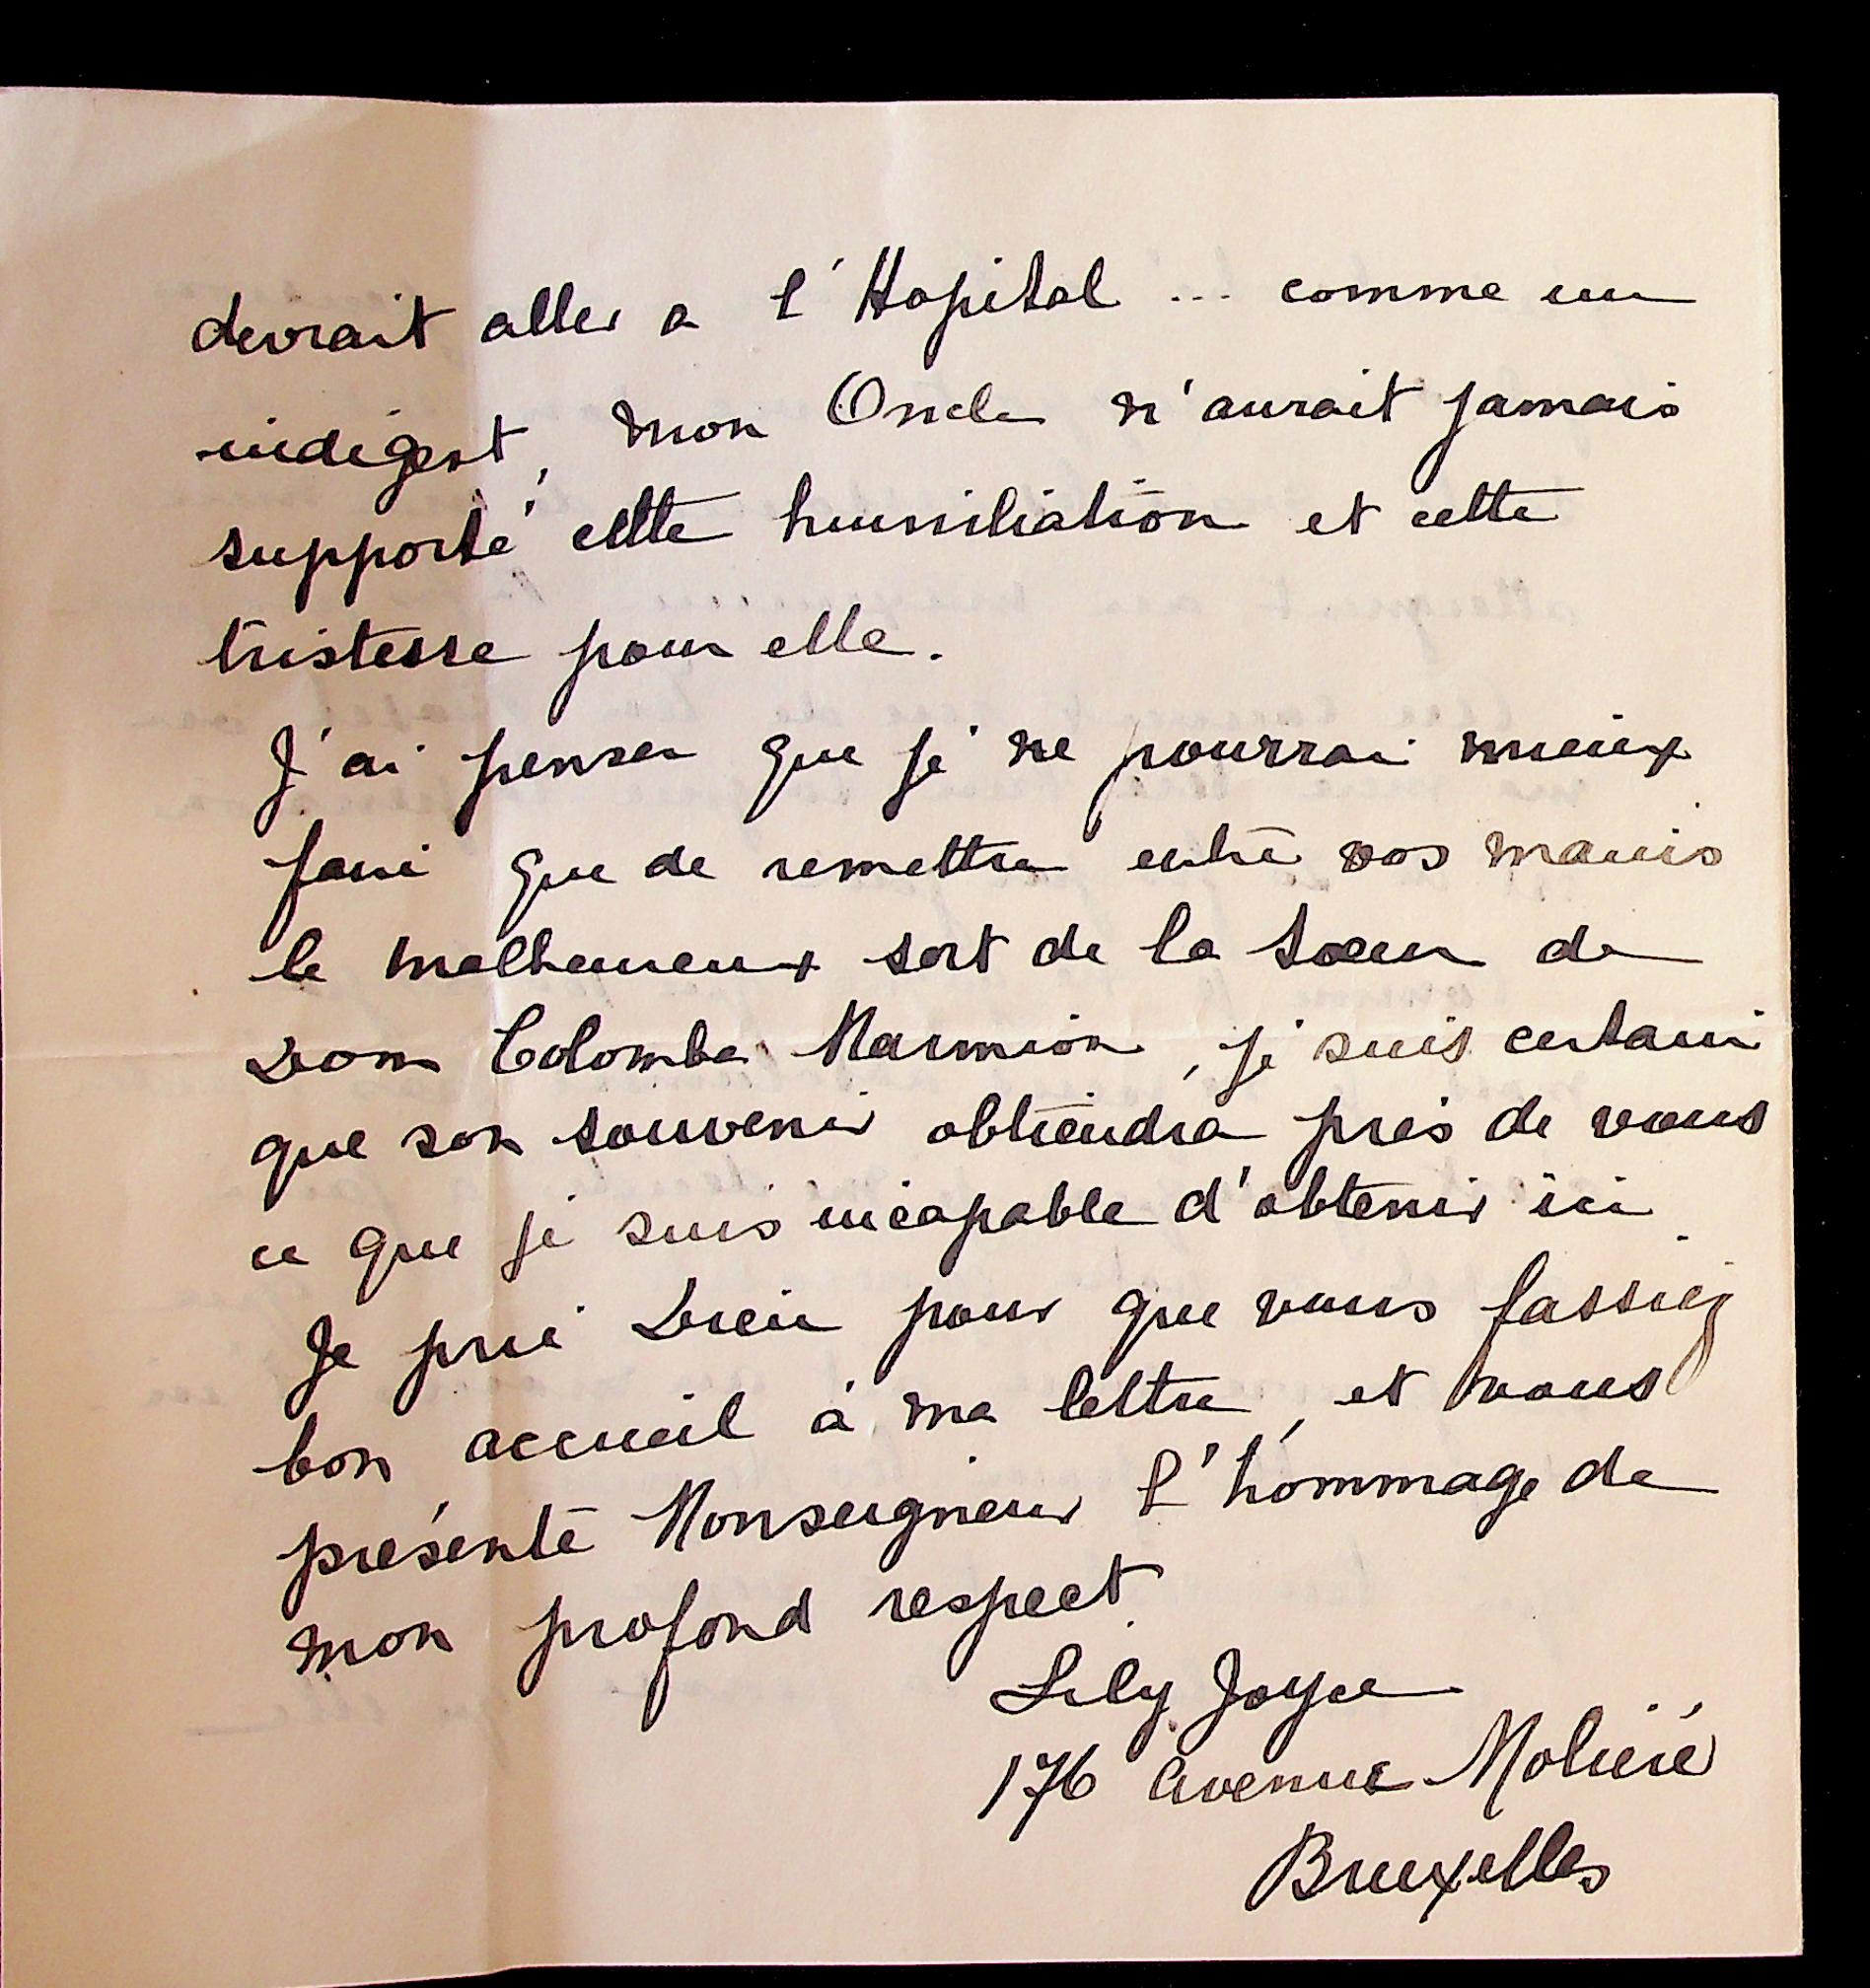 devrait aller a l'Hopital ... comme un
indigent, mon Oncle n'aurait jamais
supporté cette humiliation et cette
tristesse pour elle.
J'ai penser que je ne pourrai mieux
faire que de remettre entre vos mains
le malheureux sort de la Soeur de
Dom Colomba Marmion, je suis certain
que son souvenir obtiendra près de vous
ce que je suis incapable d'obtenir ici
Je prie Dieu pour que vous fassiez
bon accueil à ma lettre, et vous
présente Monseigneur l'hommage de
mon profond respect.
Lily Joyce
176 Avenue Molière
Bruxelles